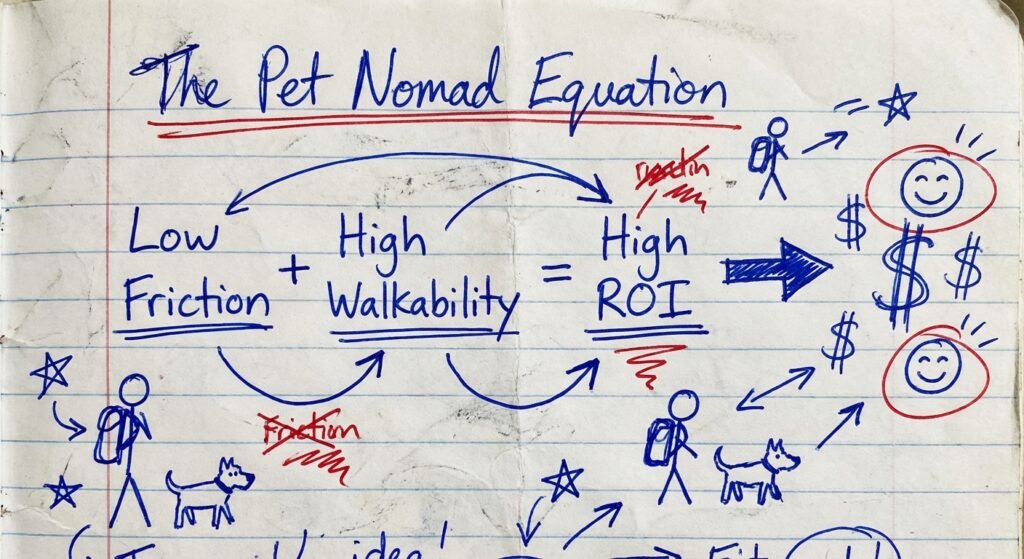 The Pet Nomad Equation
Low Friction + High Walkability = High ROI
$
$
$
$
Friction
idea!